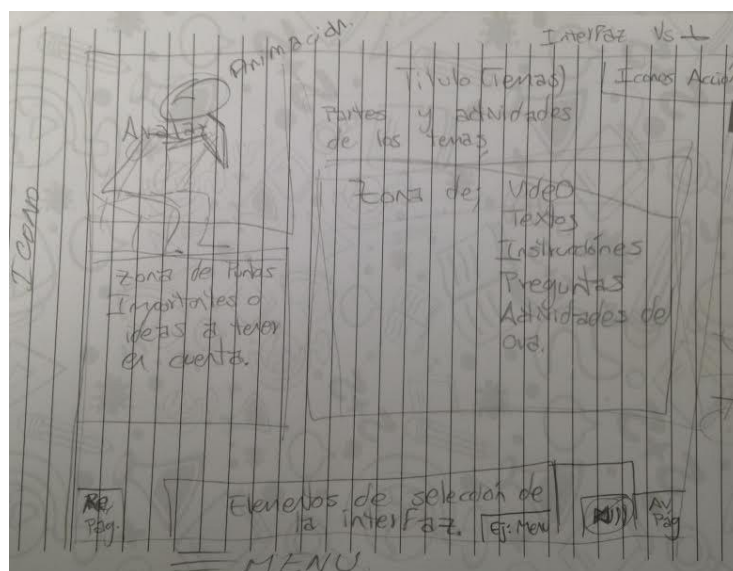 Interfaz Vs 1
Animación.
Título (Temas)
Iconos Acción
Partes y actividades
de los temas
Avatar
ICONO
Zona de; Video
Textos
Instrucciones
Preguntas
Actividades del
ova.
Zona de
Importantes o
ideas a tener
en cuenta.
Re
Pág.
Elementos de selección de
la interfaz. Ej: Menú
Av
Pág
MENU